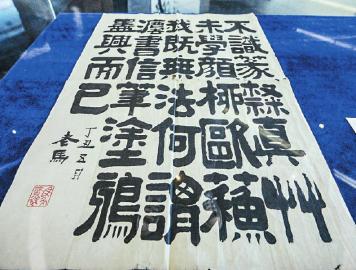 不識篆隸真艸
未學顏柳歐蘇
我既無法何謂
書信筆塗鴉
盡興而已
丁丑五月
老馬